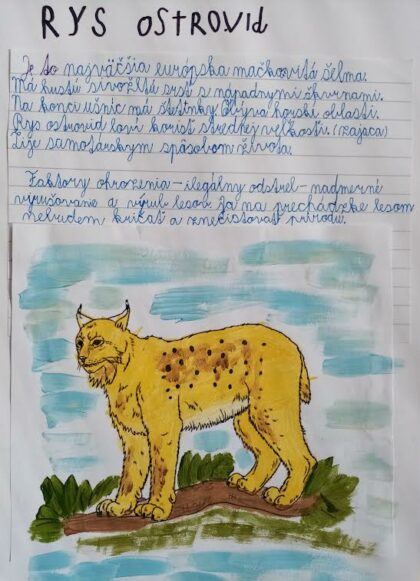 RYS OSTROVID
Je to najväčšia európska mačkovitá šelma.
Má hustú sivožltú srsť s nápadnými škvrnami.
Na konci ušníc má štetinky. Obýva horské oblasti.
Rys ostrovid loví korisť strednej veľkosti. (zajaca)
Žije samotárskym spôsobom života.
Faktory ohrozenia - ilegálny odstrel - nadmerné
vyrušovanie a výrub lesov. Ja na prechádzke lesom
nebudem kričať a znečisťovať prírodu.